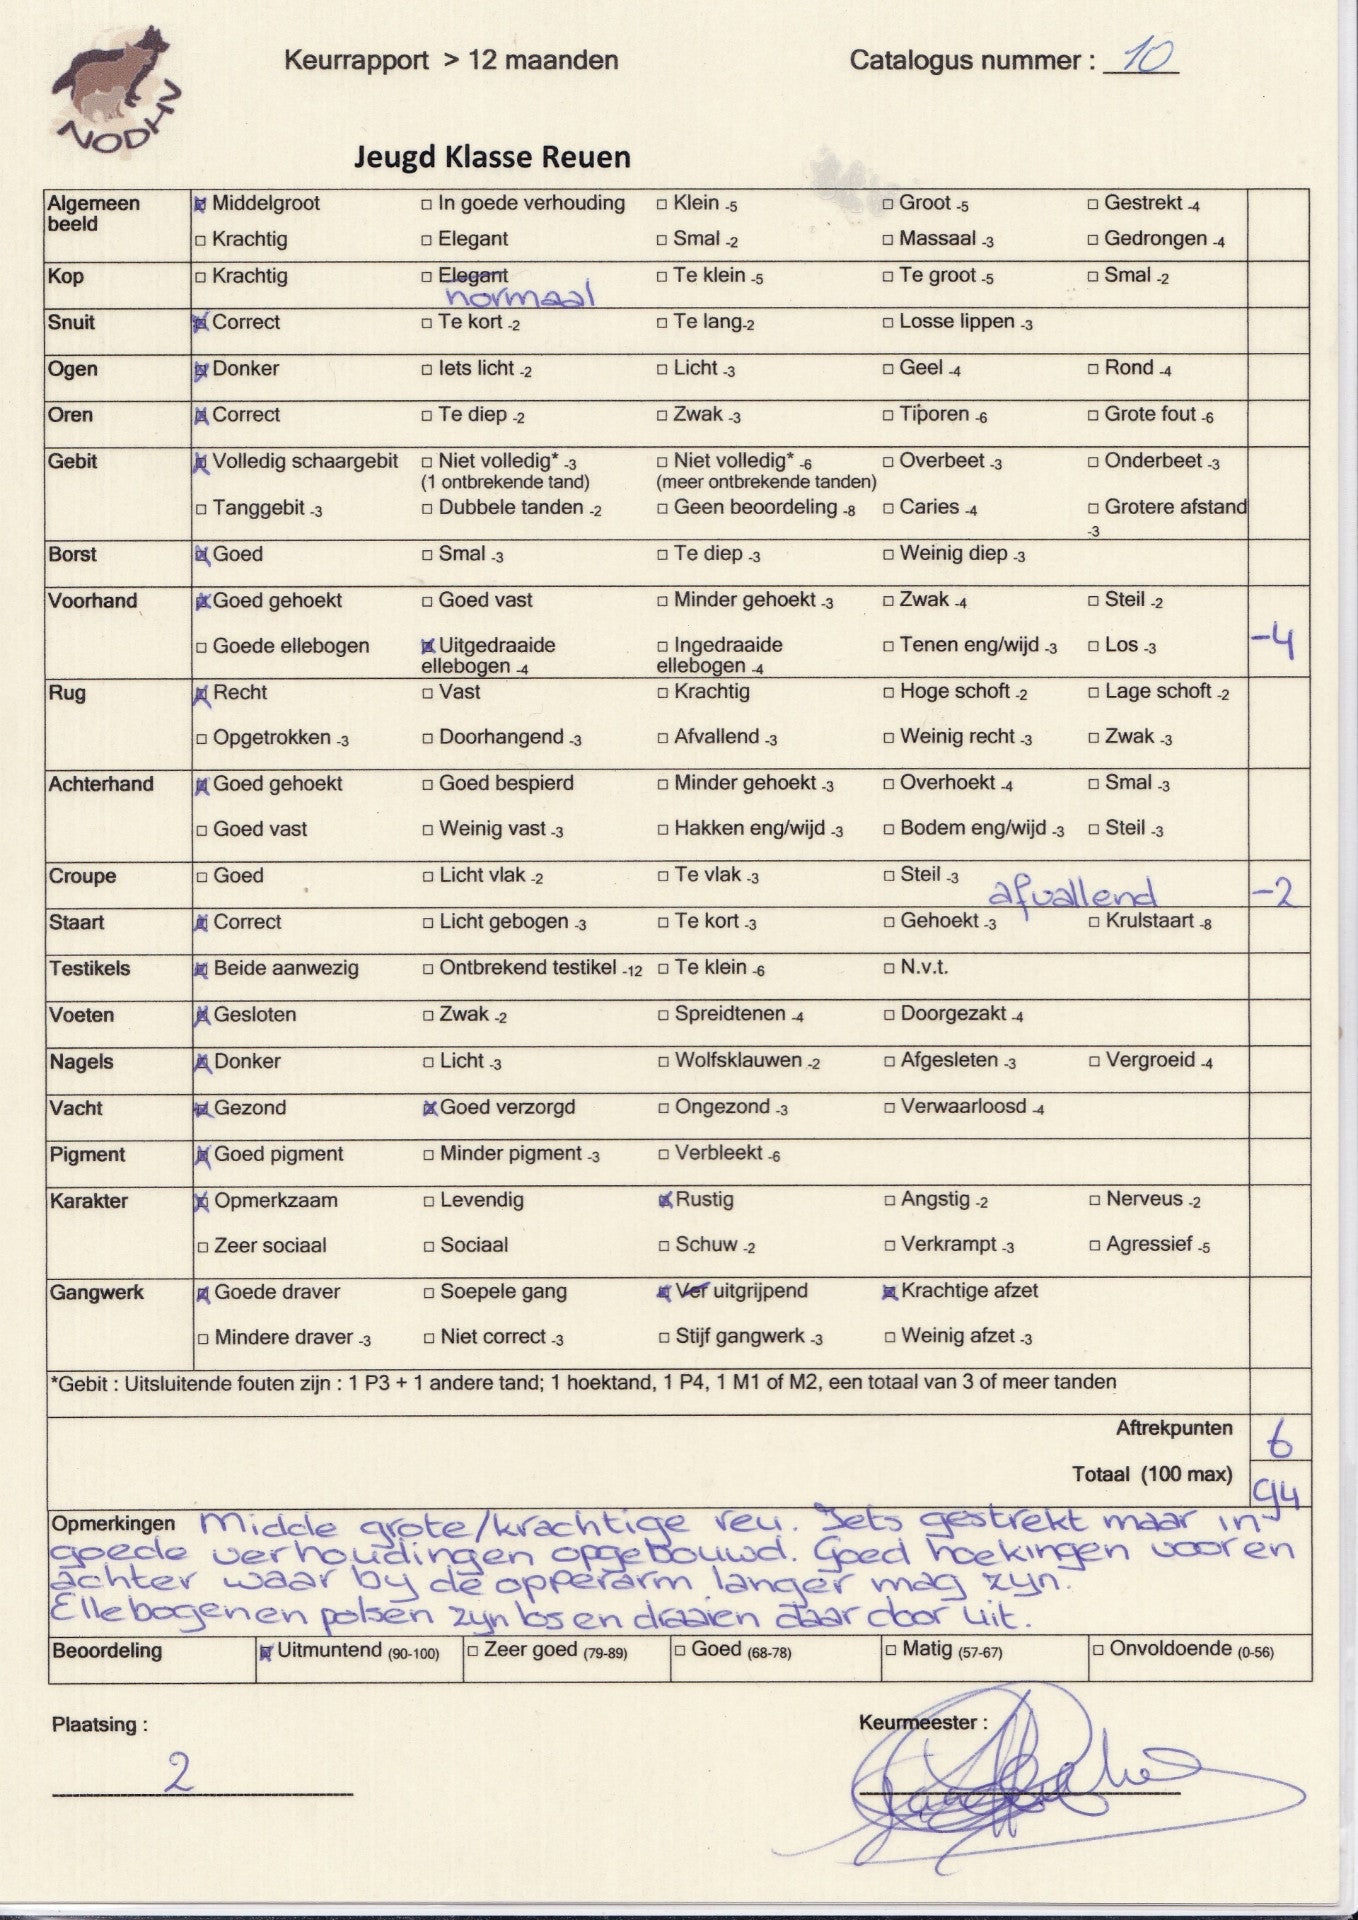 NODHN
Keurrapport > 12 maanden Catalogus nummer : 10
Jeugd Klasse Reuen
Algemeen beeld ☒ Middelgroot □ In goede verhouding □ Klein -5 □ Groot -5 □ Gestrekt -4
□ Krachtig □ Elegant □ Smal -2 □ Massaal -3 □ Gedrongen -4
Kop □ Krachtig □ Elegant □ Te klein -5 □ Te groot -5 □ Smal -2
normaal
Snuit ☒ Correct □ Te kort -2 □ Te lang-2 □ Losse lippen -3
Ogen ☒ Donker □ Iets licht -2 □ Licht -3 □ Geel -4 □ Rond -4
Oren ☒ Correct □ Te diep -2 □ Zwak -3 □ Tiporen -6 □ Grote fout -6
Gebit ☒ Volledig schaargebit □ Niet volledig* -3 □ Niet volledig* -6 □ Overbeet -3 □ Onderbeet -3
(1 ontbrekende tand) (meer ontbrekende tanden)
□ Tanggebit -3 □ Dubbele tanden -2 □ Geen beoordeling -8 □ Caries -4 □ Grotere afstand
-3
Borst ☒ Goed □ Smal -3 □ Te diep -3 □ Weinig diep -3
Voorhand ☒ Goed gehoekt □ Goed vast □ Minder gehoekt -3 □ Zwak -4 □ Steil -2
□ Goede ellebogen ☒ Uitgedraaide □ Ingedraaide □ Tenen eng/wijd -3 □ Los -3 -4
ellebogen -4 ellebogen -4
Rug ☒ Recht □ Vast □ Krachtig □ Hoge schoft -2 □ Lage schoft -2
□ Opgetrokken -3 □ Doorhangend -3 □ Afvallend -3 □ Weinig recht -3 □ Zwak -3
Achterhand ☒ Goed gehoekt □ Goed bespierd □ Minder gehoekt -3 □ Overhoekt -4 □ Smal -3
□ Goed vast □ Weinig vast -3 □ Hakken eng/wijd -3 □ Bodem eng/wijd -3 □ Steil -3
Croupe □ Goed □ Licht vlak -2 □ Te vlak -3 □ Steil -3 afvallend -2
Staart ☒ Correct □ Licht gebogen -3 □ Te kort -3 □ Gehoekt -3 □ Krulstaart -8
Testikels ☒ Beide aanwezig □ Ontbrekend testikel -12 □ Te klein -6 □ N.v.t.
Voeten ☒ Gesloten □ Zwak -2 □ Spreidtenen -4 □ Doorgezakt -4
Nagels ☒ Donker □ Licht -3 □ Wolfsklauwen -2 □ Afgesleten -3 □ Vergroeid -4
Vacht ☒ Gezond ☒ Goed verzorgd □ Ongezond -3 □ Verwaarloosd -4
Pigment ☒ Goed pigment □ Minder pigment -3 □ Verbleekt -6
Karakter ☒ Opmerkzaam □ Levendig ☒ Rustig □ Angstig -2 □ Nerveus -2
□ Zeer sociaal □ Sociaal □ Schuw -2 □ Verkrampt -3 □ Agressief -5
Gangwerk ☒ Goede draver □ Soepele gang ☒ Ver uitgrijpend ☒ Krachtige afzet
□ Mindere draver -3 □ Niet correct -3 □ Stijf gangwerk -3 □ Weinig afzet -3
*Gebit : Uitsluitende fouten zijn : 1 P3 + 1 andere tand; 1 hoektand, 1 P4, 1 M1 of M2, een totaal van 3 of meer tanden
Aftrekpunten 6
Totaal (100 max) 94
Opmerkingen Midde grote/krachtige reu. Iets gestrekt maar in
goede verhoudingen opgebouwd. Goed hoekingen voor en
achter waar by de opperarm langer mag zyn.
Ellebogen en polsen zyn los en draaien daar door uit.
Beoordeling ☒ Uitmuntend (90-100) □ Zeer goed (79-89) □ Goed (68-78) □ Matig (57-67) □ Onvoldoende (0-56)
Plaatsing : Keurmeester :
2